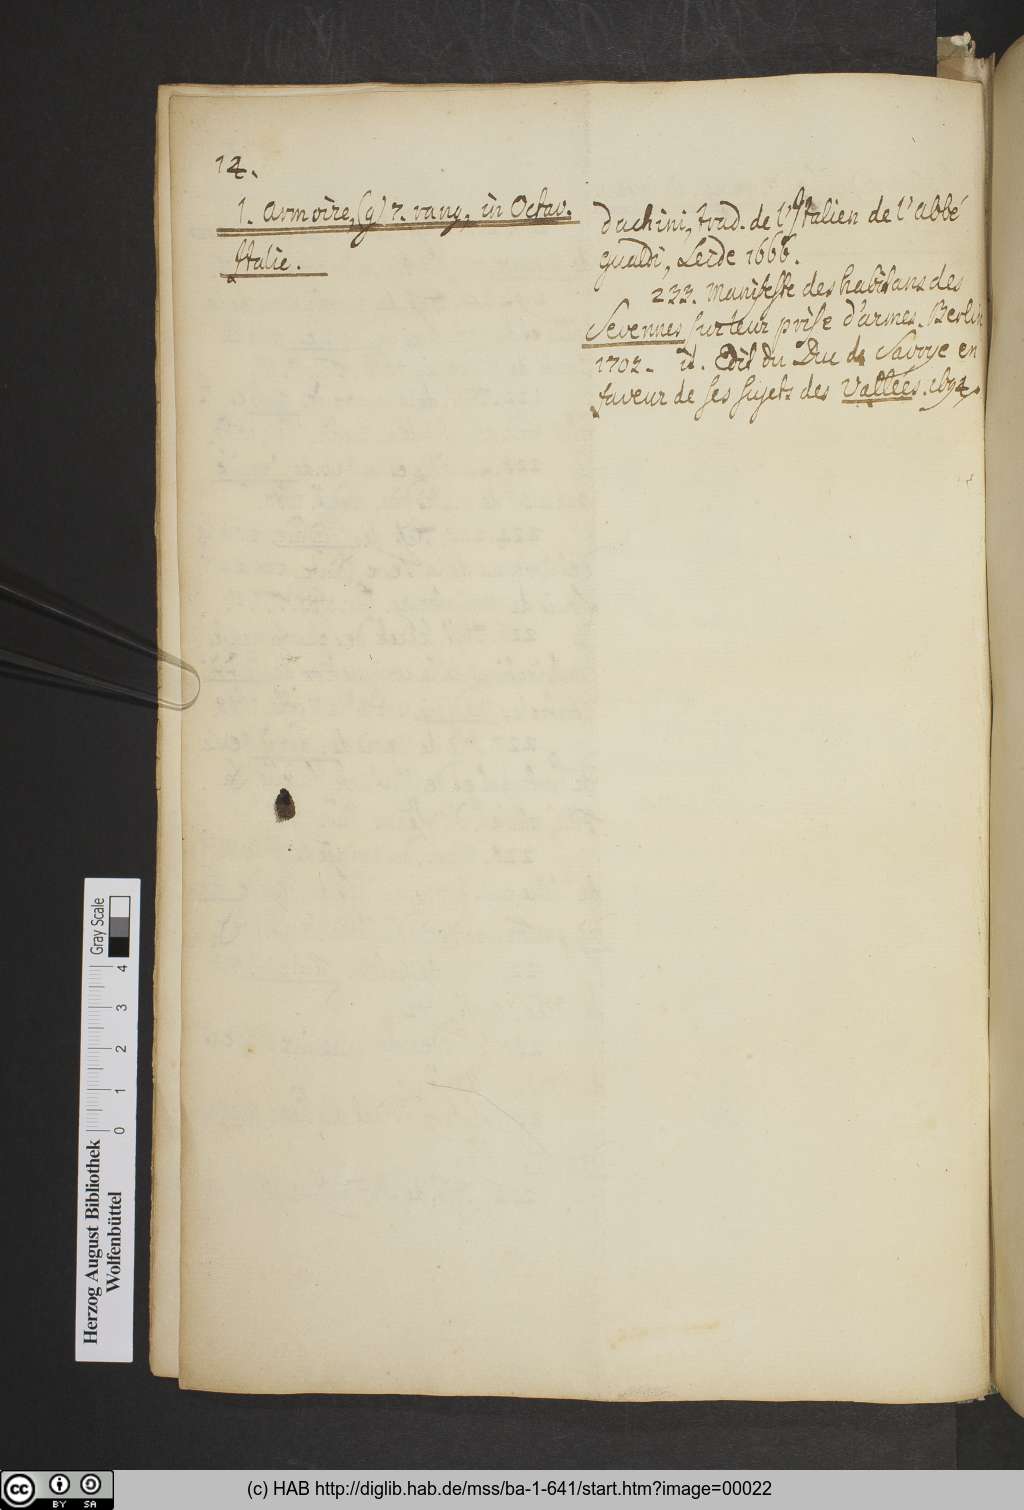 14.
1. Armoire, (g) 7. rang, in Octav.
Italie.
dachini, trad. de l'Italien de l'abbé
Gualdi, Leide 1666.
233. Manifeste des habitans des
Sevennes sur leur prise d'armes. Berlin
1702. it. Edit du Duc de Savoye en
faveur de ses sujets des Vallées. 1694.
Gray Scale
0 1 2 3 4
Herzog August Bibliothek
Wolfenbüttel
cc BY SA
(c) HAB http://diglib.hab.de/mss/ba-1-641/start.htm?image=00022